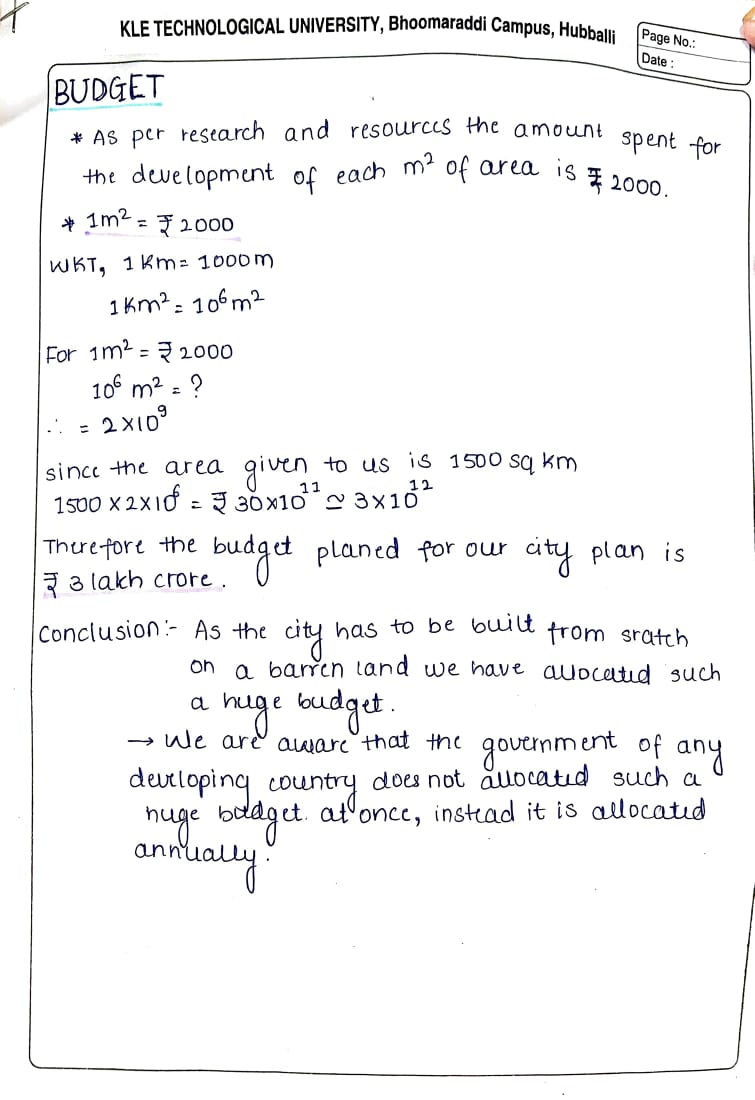 KLE TECHNOLOGICAL UNIVERSITY, Bhoomaraddi Campus, Hubballi
Page No.:
Date :
BUDGET
* As per research and resources the amount spent for
the development of each m² of area is ₹ 2000.
* 1m² = ₹ 2000
WKT, 1 Km = 1000m
1 Km² = 10⁶ m²
For 1m² = ₹ 2000
10⁶ m² = ?
∴ = 2×10⁹
since the area given to us is 1500 sq km
1500 × 2×10 = ₹ 30×10¹¹ ≃ 3×10¹²
Therefore the budget planed for our city plan is
₹ 3 lakh crore.
Conclusion:- As the city has to be built from sratch
on a barren land we have allocated such
a huge budget.
→ We are aware that the government of any
developing country does not allocated such a
huge budget. at once, instead it is allocated
annually.